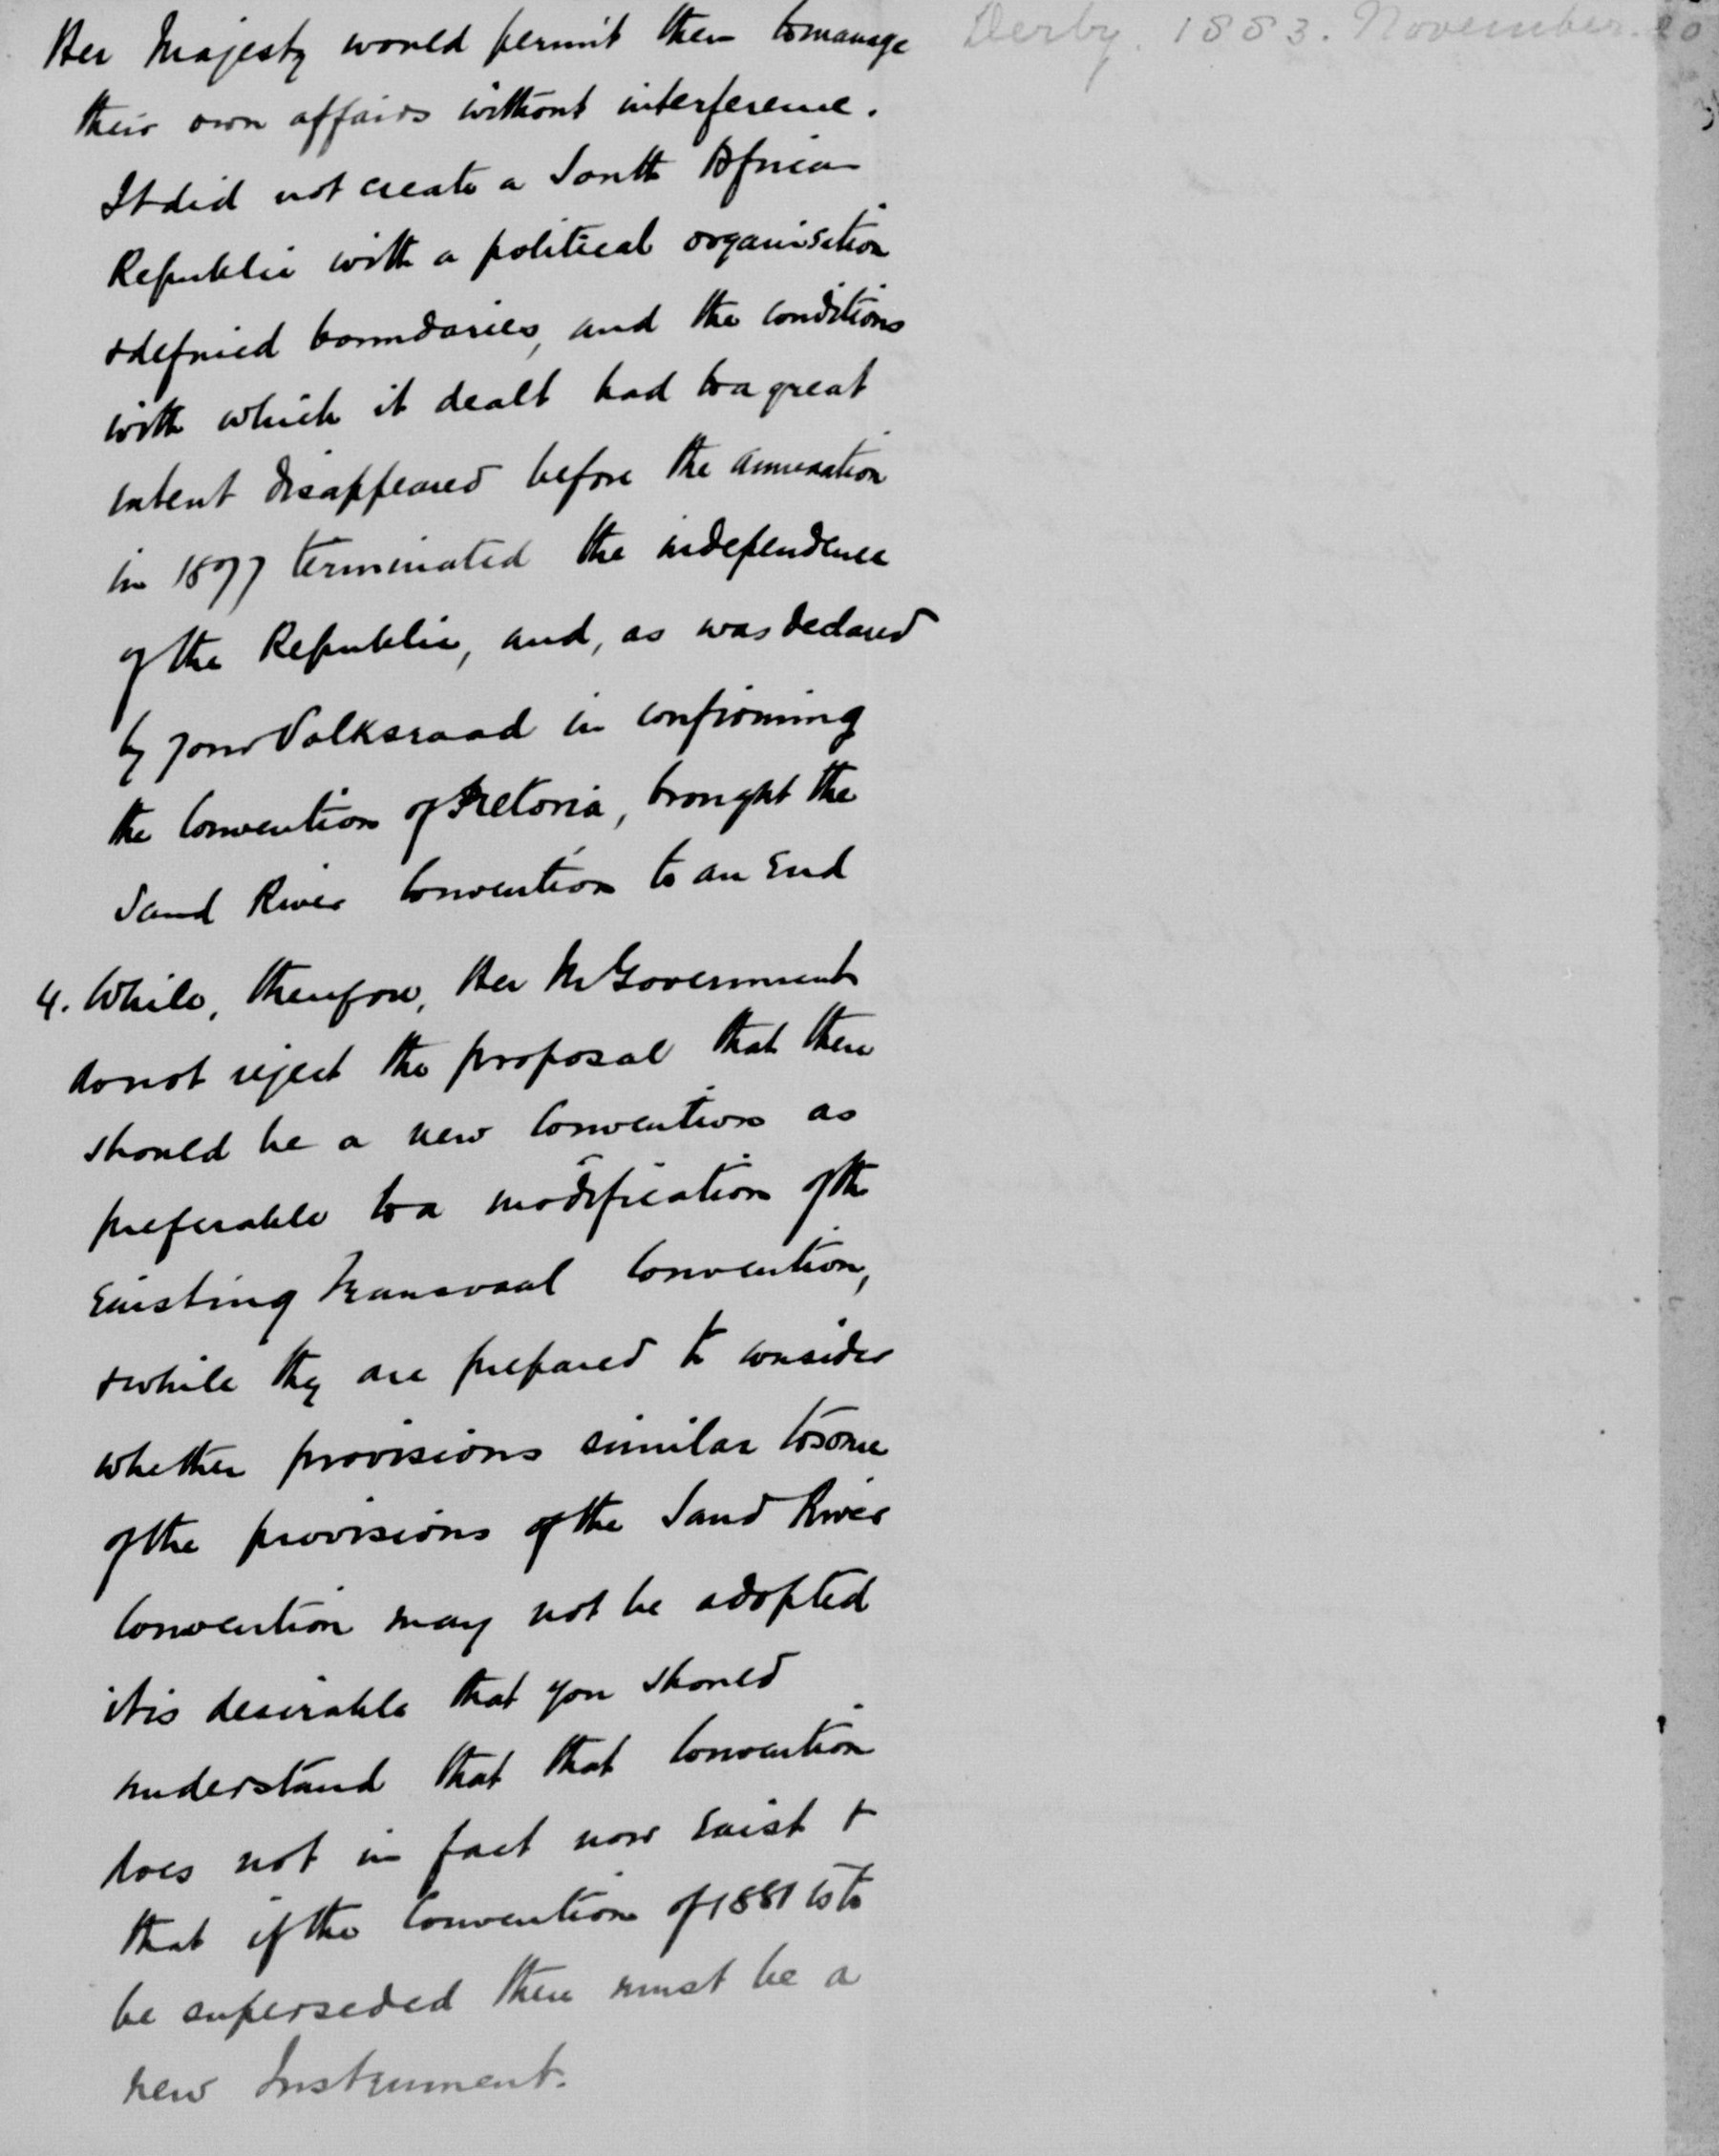 Her Majesty would permit them to manage
their own affairs without interference.
It did not create a South African
Republic with a political organisation
& defined boundaries, and the conditions
with which it dealt had to a great
extent disappeared before the annexation
in 1877 terminated the independence
of the Republic, and, as was declared
by your Volksraad in confirming
the Convention of Pretoria, brought the
Sand River Convention to an end
4. While, therefore, Her M Government
do not reject the proposal that there
should be a new Convention as
preferable to a modification of the
existing Transvaal Convention,
& while they are prepared to consider
whether provisions similar to some
of the provisions of the Sand River
Convention may not be adopted
it is desirable that you should
understand that that Convention
does not in fact now exist &
that if the Convention of 1881 is to
be superseded there must be a
new Instrument.
Derby. 1883. November. 20